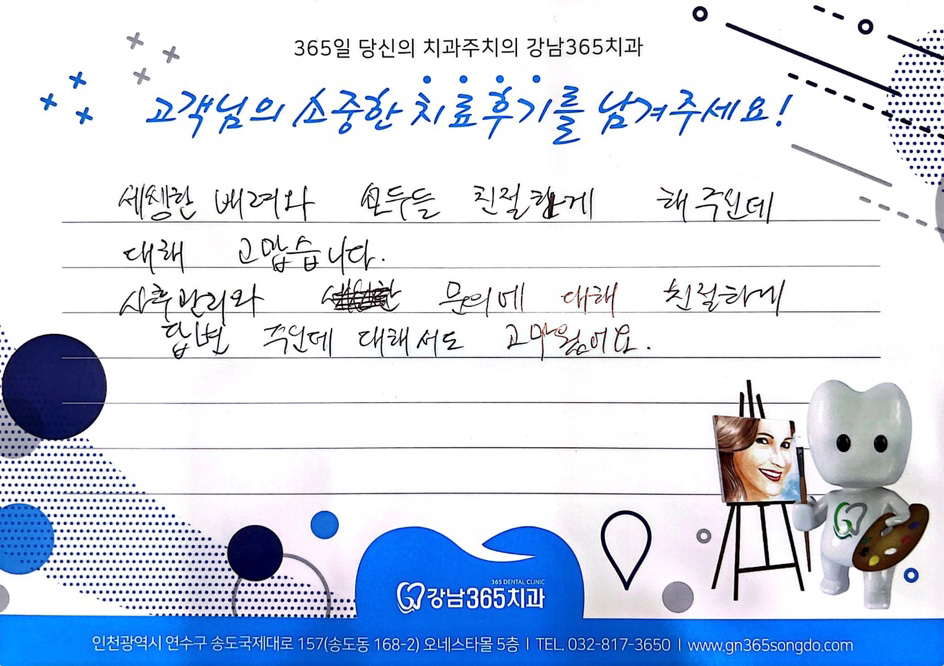 365일 당신의 치과주치의 강남365치과
고객님의 소중한 치료후기를 남겨주세요!
세심한 배려와 모두들 친절하게 해주신데
대해 고맙습니다.
사후관리와 문의에 대해 친절하게
답변 주신데 대해서도 고마웠어요.
365 DENTAL CLINIC
강남365치과
인천광역시 연수구 송도국제대로 157(송도동 168-2) 오네스타몰 5층 | TEL. 032-817-3650 | www.gn365songdo.com